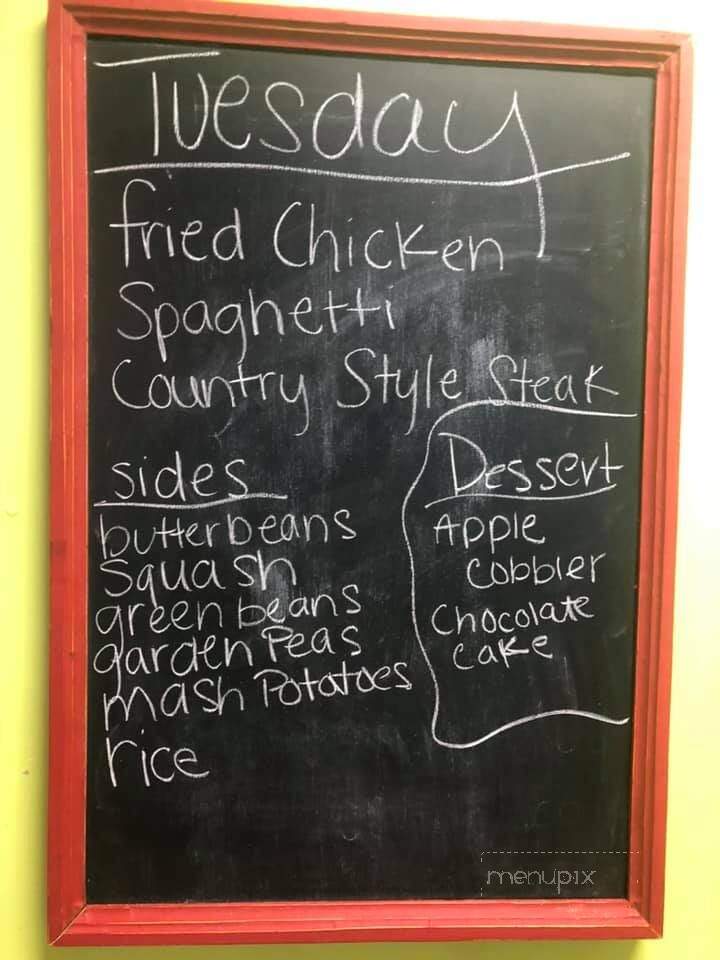 Tuesday
fried Chicken
Spaghetti
Country Style Steak
sides
butterbeans
Squash
green beans
garden Peas
mash Potatoes
rice
Dessert
Apple
Cobbler
Chocolate
cake
menupix